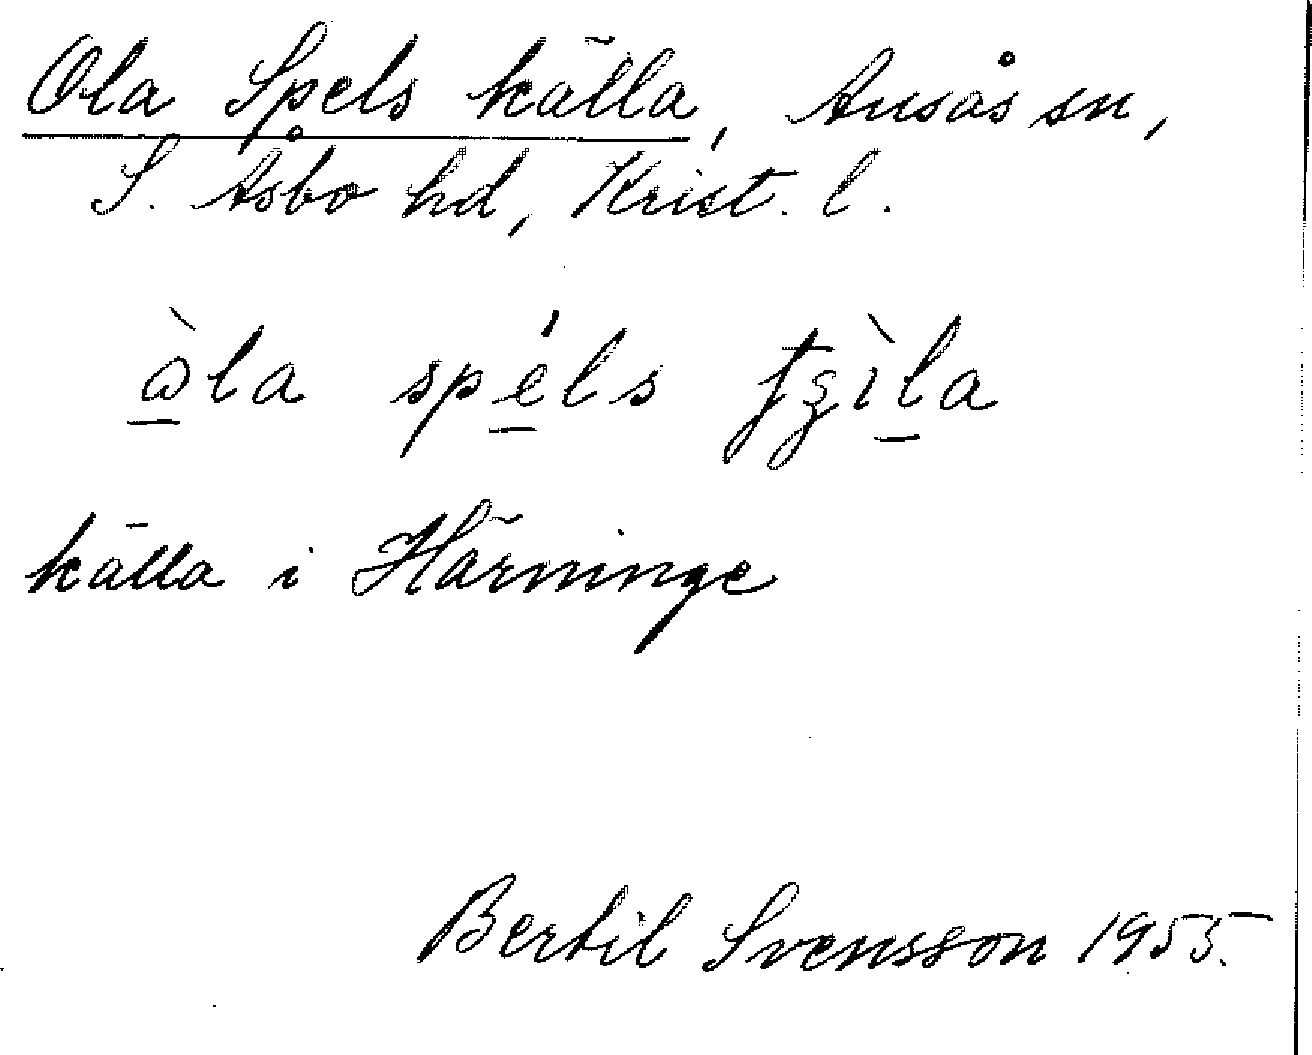 Ola Spels källa, Ausås sn,
S. Åsbo hd, Krist. l.
òla spéls tʒìla
källa i Härninge
Bertil Svensson 1955.